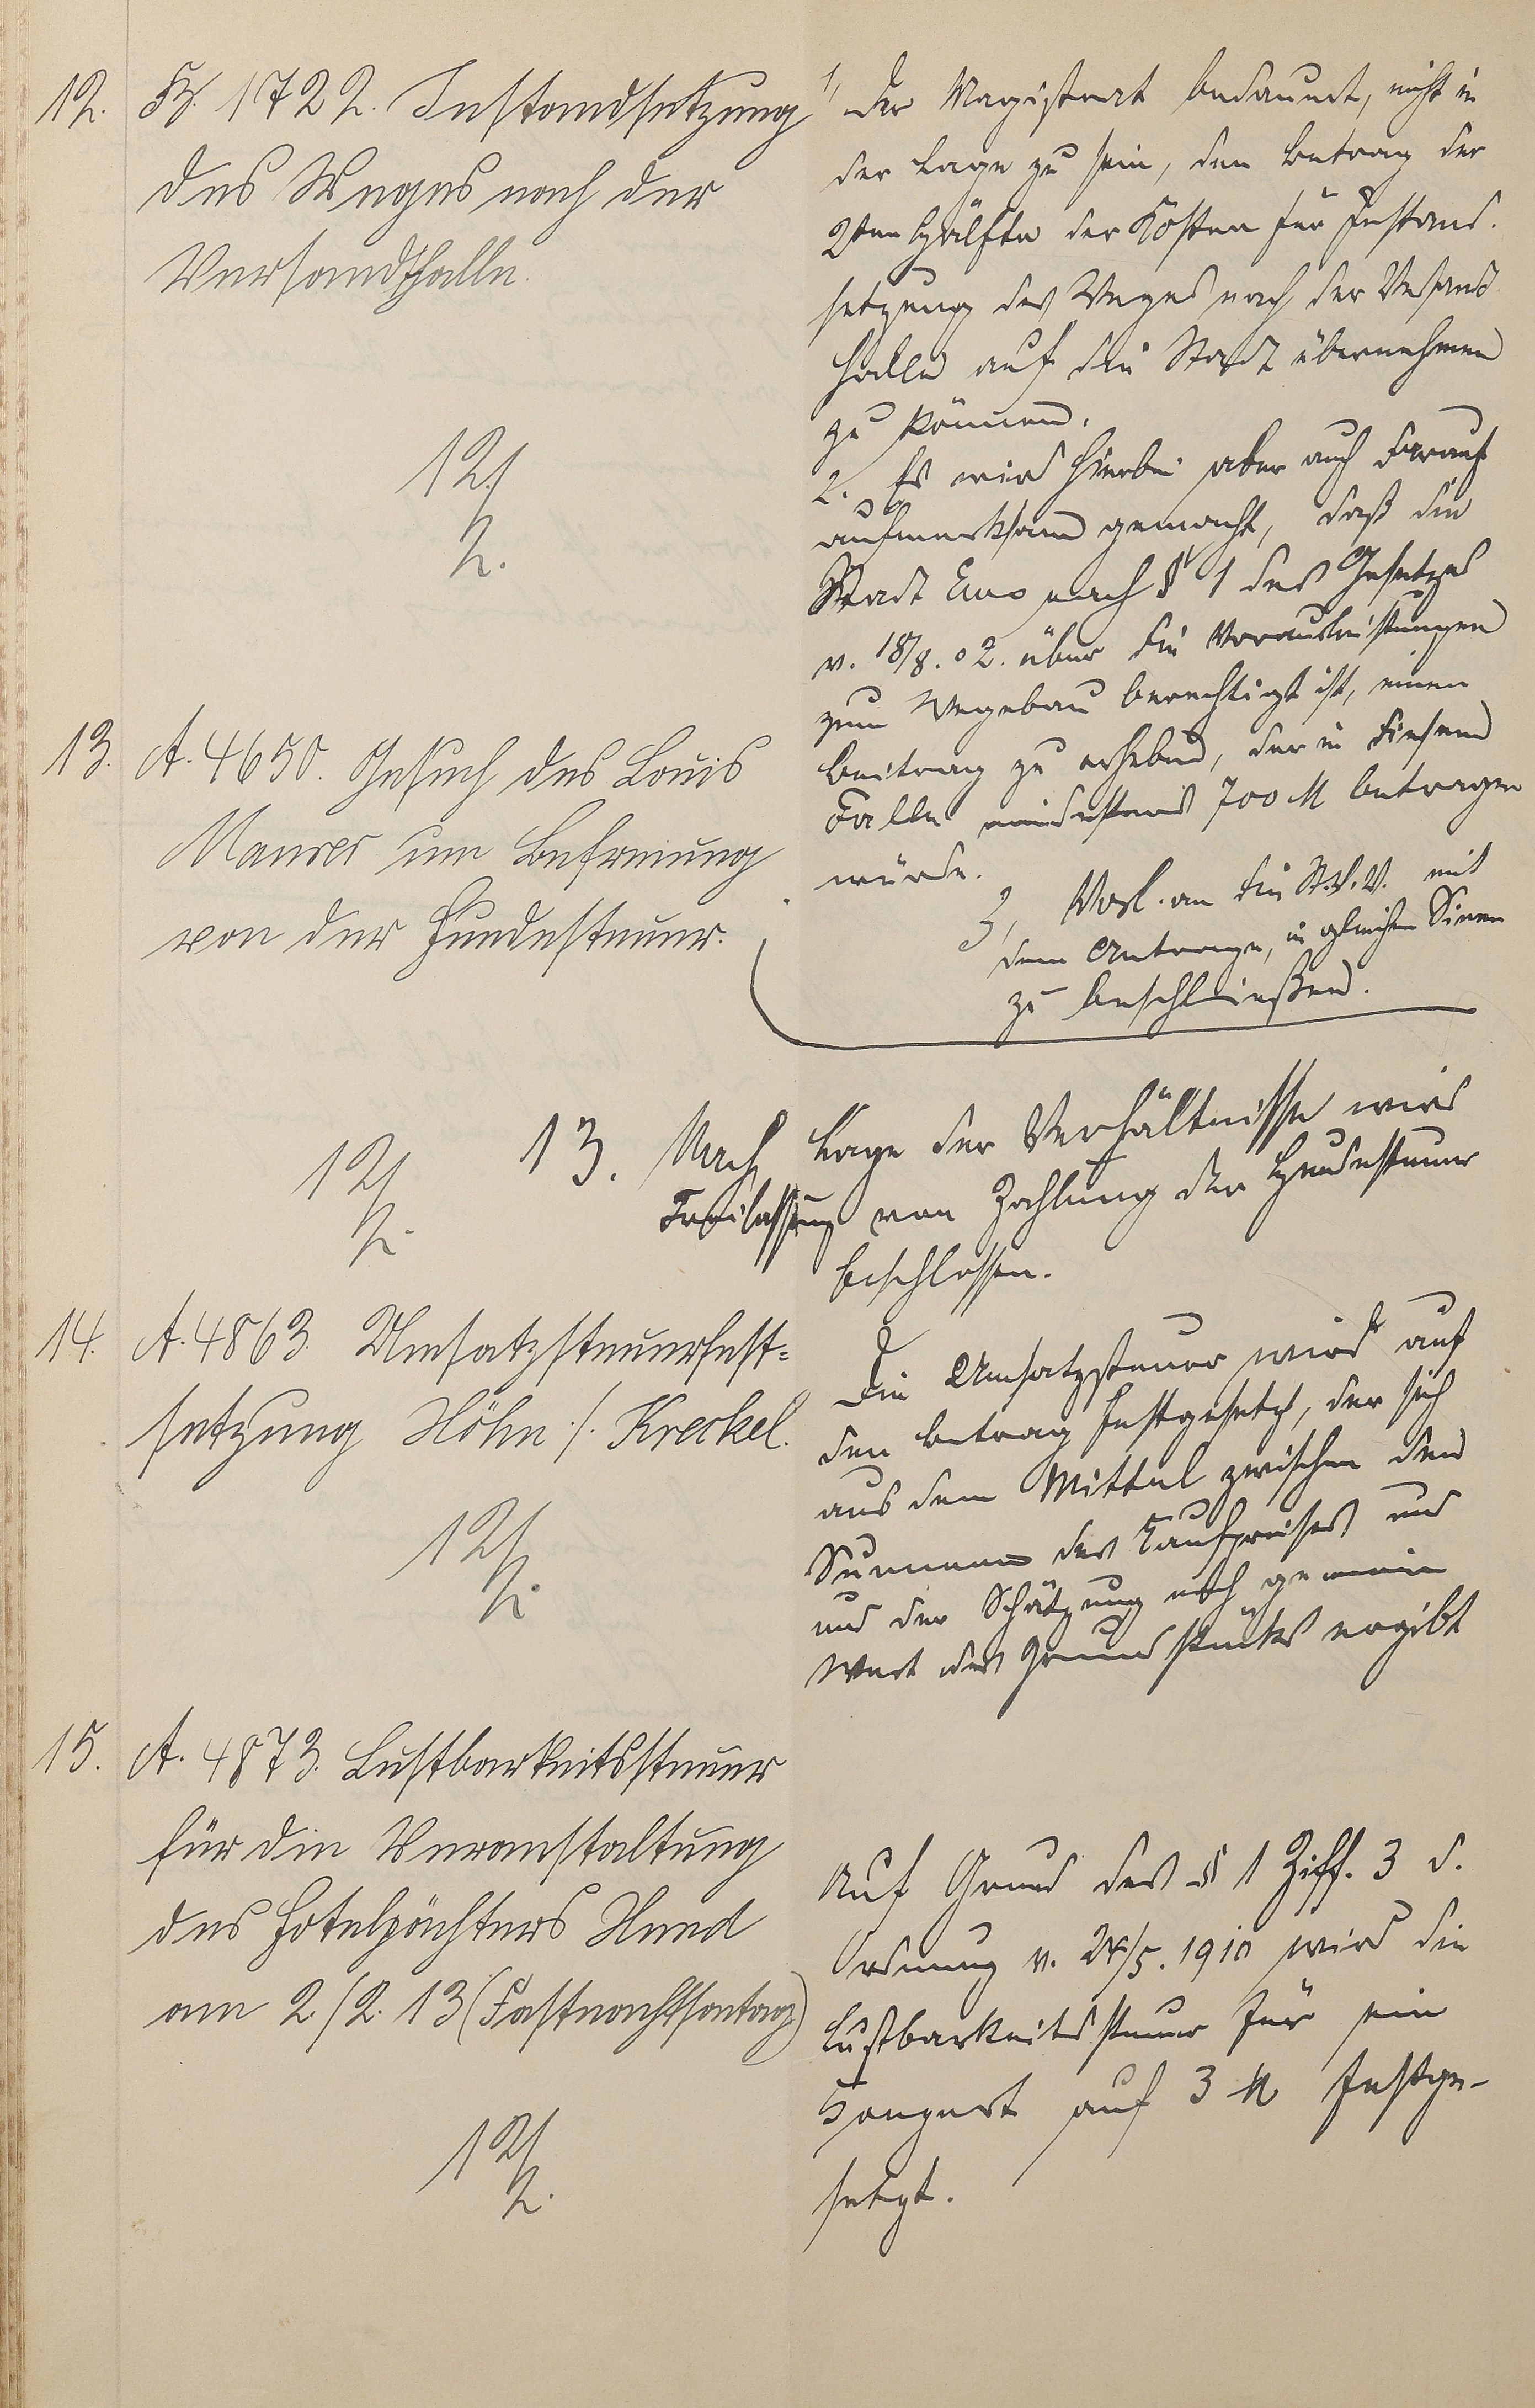 12. Fz. 1722. Instandsetzung
des Weges nach der
Versandhalle.
12/2.
1, Der Magistrat bedauert, nicht in
der Lage zu sein, den Betrag der
2ten Hälfte der Kosten für Instand-
setzung des Weges nach der Versand
halle auf die Stadt übernehmen
zu können.
2. Es wird hierbei aber auch darauf
aufmerksam gemacht, daß die
Stadt Ems nach § 1 des Gesetzes
v. 18/8.02. über die Vorausleistungen
zum Wegebau berechtigt ist, einen
Beitrag zu erheben, der in diesem
Falle mindestens 700 M betragen
würde.
3, Vorl. an die St.V.V. mit
dem Antrage, in gleichem Sinne
zu beschließen.
13. A. 4650. Gesuch des Louis
Maurer um Befreiung
von der Hundesteuer.
12/2.
13. Nach Lage der Verhältnisse wird
Freilassung von Zahlung der Hundesteuer
beschlossen.
14. A. 4863. Umsatzsteuerfest=
setzung Höhn ./. Kreckel.
12/2.
Die Umsatzsteuer wird auf
den Betrag festgesetzt, der sich
aus dem Mittel zwischen den
Summen des Kaufpreises und
und der Schätzung nach gemein
Wert des Grundstücks ergibt
15. A. 4873. Lustbarkeitssteuer
für die Veranstaltung
des Hotelpächters Uned
am 2/2. 13 (Fastnachtsontag)
12/2.
Auf Grund des § 1 Ziff. 3 d.
Ordnung v. 24/5. 1910 wird die
Lustbarkeitssteuer für ein
Konzert auf 3 M festge-
setzt.